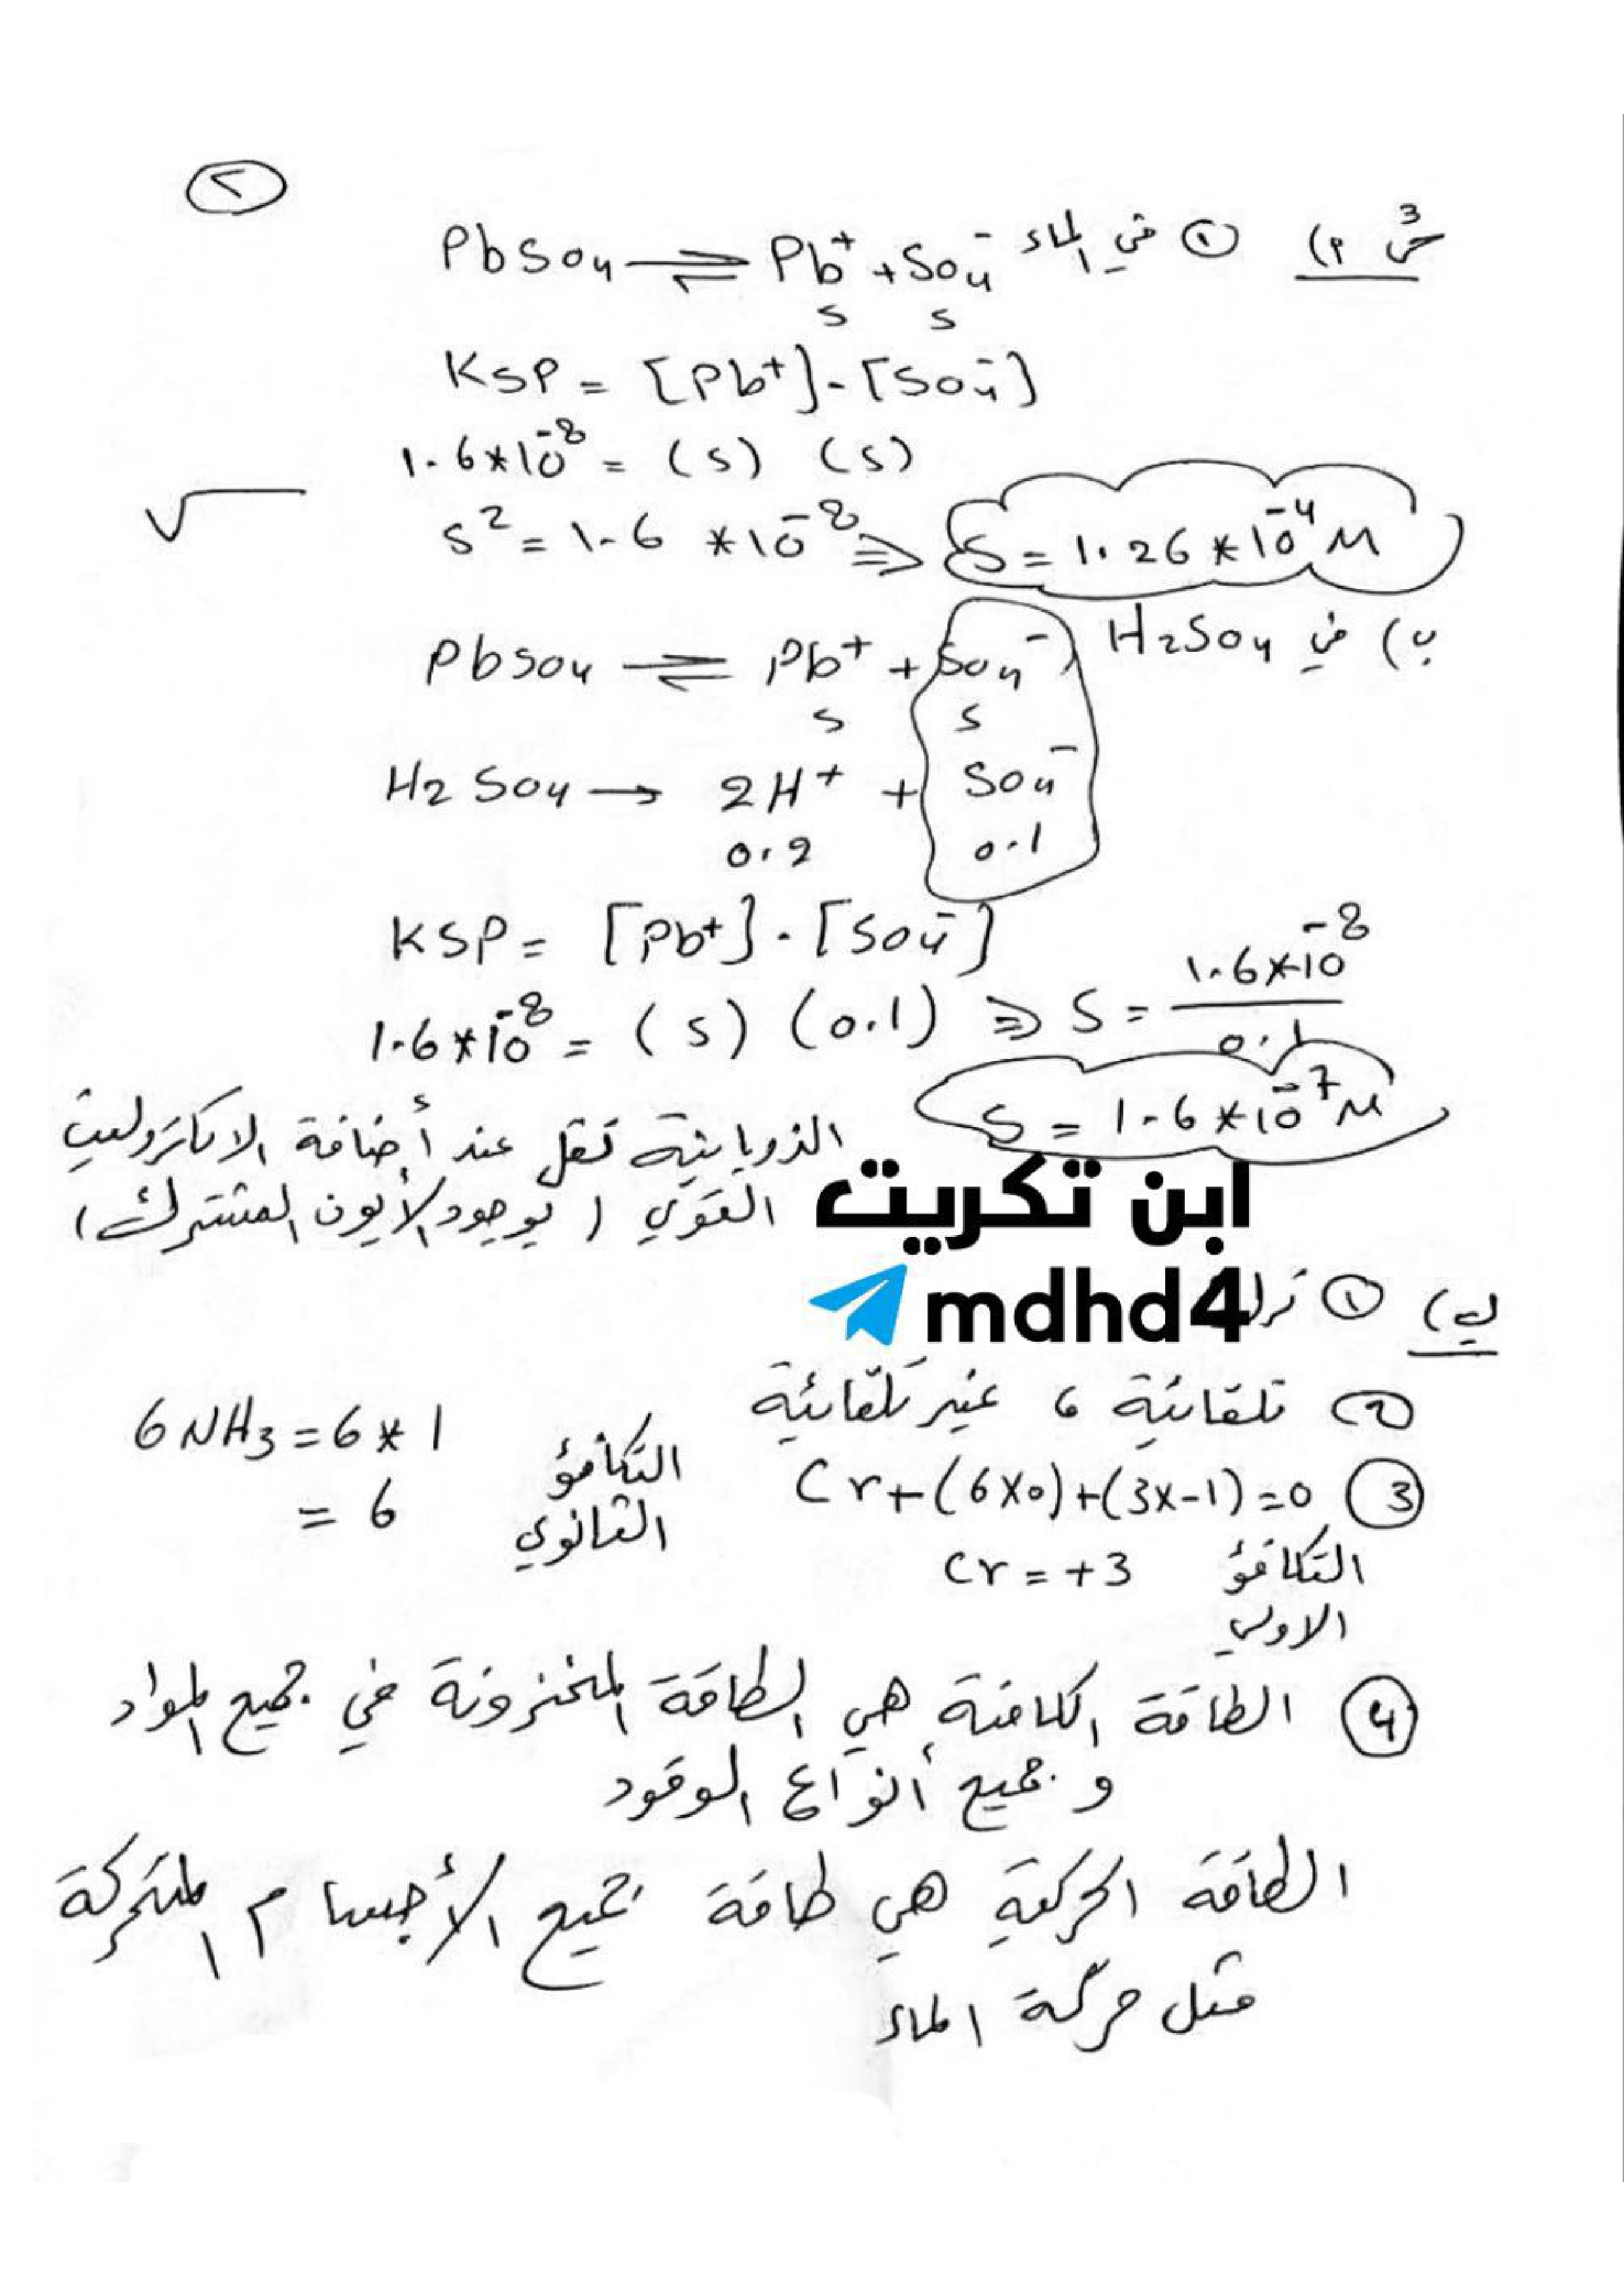 ٢
س3 أ) ① في الماء PbSo4 ⇌ Pb+ + So4-
s s
KSP = [Pb+]-[So4-]
1.6*10-8 = (s) (s)
√ s2 = 1.6 *10-8 ⇒ S = 1.26*10-4 M
ب) في H2So4 PbSo4 ⇌ Pb+ + So4-
s s
H2So4 → 2H+ + So4-
0.2 0.1
KSP = [Pb+].[So4-]
1.6*10-8 = (s) (0.1) ⇒ S = 1.6*10-8 / 0.1
S = 1.6*10-7 M
الذوبانية تقل عند أضافة الالكتروليت
القوي (بوجود الأيون المشترك)
ابن تكريت
mdhd4
ب) ①
② تلقائية ، غير تلقائية
③ Cr+(6X0)+(3X-1)=0
التكافؤ الاولي Cr = +3
التكافؤ الثانوي 6NH3 = 6*1
= 6
④ الطاقة الكامنة هي الطاقة المخزونة في جميع المواد
و جميع أنواع الوقود
الطاقة الحركية هي طاقة جميع الأجسام المتحركة
مثل حركة الماء